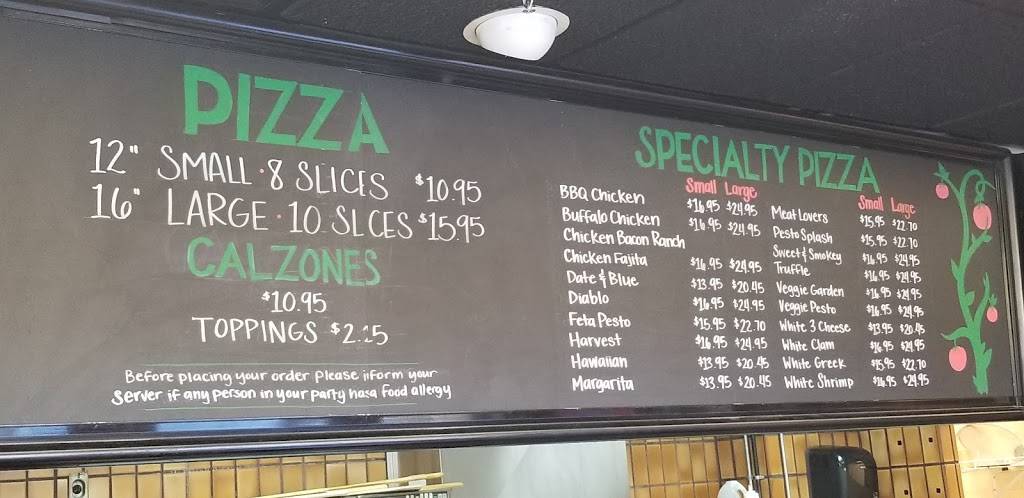 PIZZA
12" SMALL·8 SLICES $10.95
16" LARGE·10 SLCES $15.95
CALZONES
$10.95
TOPPINGS
Before placing your order please iiform your
server if any person in your party hasa food allergy
SPECIALTY PIZZA
Small Large
BBQ Chicken $16.95 $24.95
Buffalo Chicken $16.95 $24.95
Chicken Bacon Ranch
Chicken Fajita $16.95 $24.95
Date & Blue $13.95 $20.45
Diablo $16.95 $24.95
Feta Pesto $15.95 $22.70
Harvest $16.95 $24.95
Hawaiian $13.95 $20.45
Margarita $13.95 $20.45
Small Large
Meat Lovers $15.95 $22.70
Pesto Splash $15.95 $22.70
Sweet & Smokey $16.95 $24.95
Truffle $16.95 $24.95
Veggie Garden $16.95 $24.95
Veggie Pesto $16.95 $24.95
White 3 Cheese $13.95 $20.45
White Clam $16.95 $24.95
White Greek $15.95 $22.70
White Shrimp $16.95 $24.95